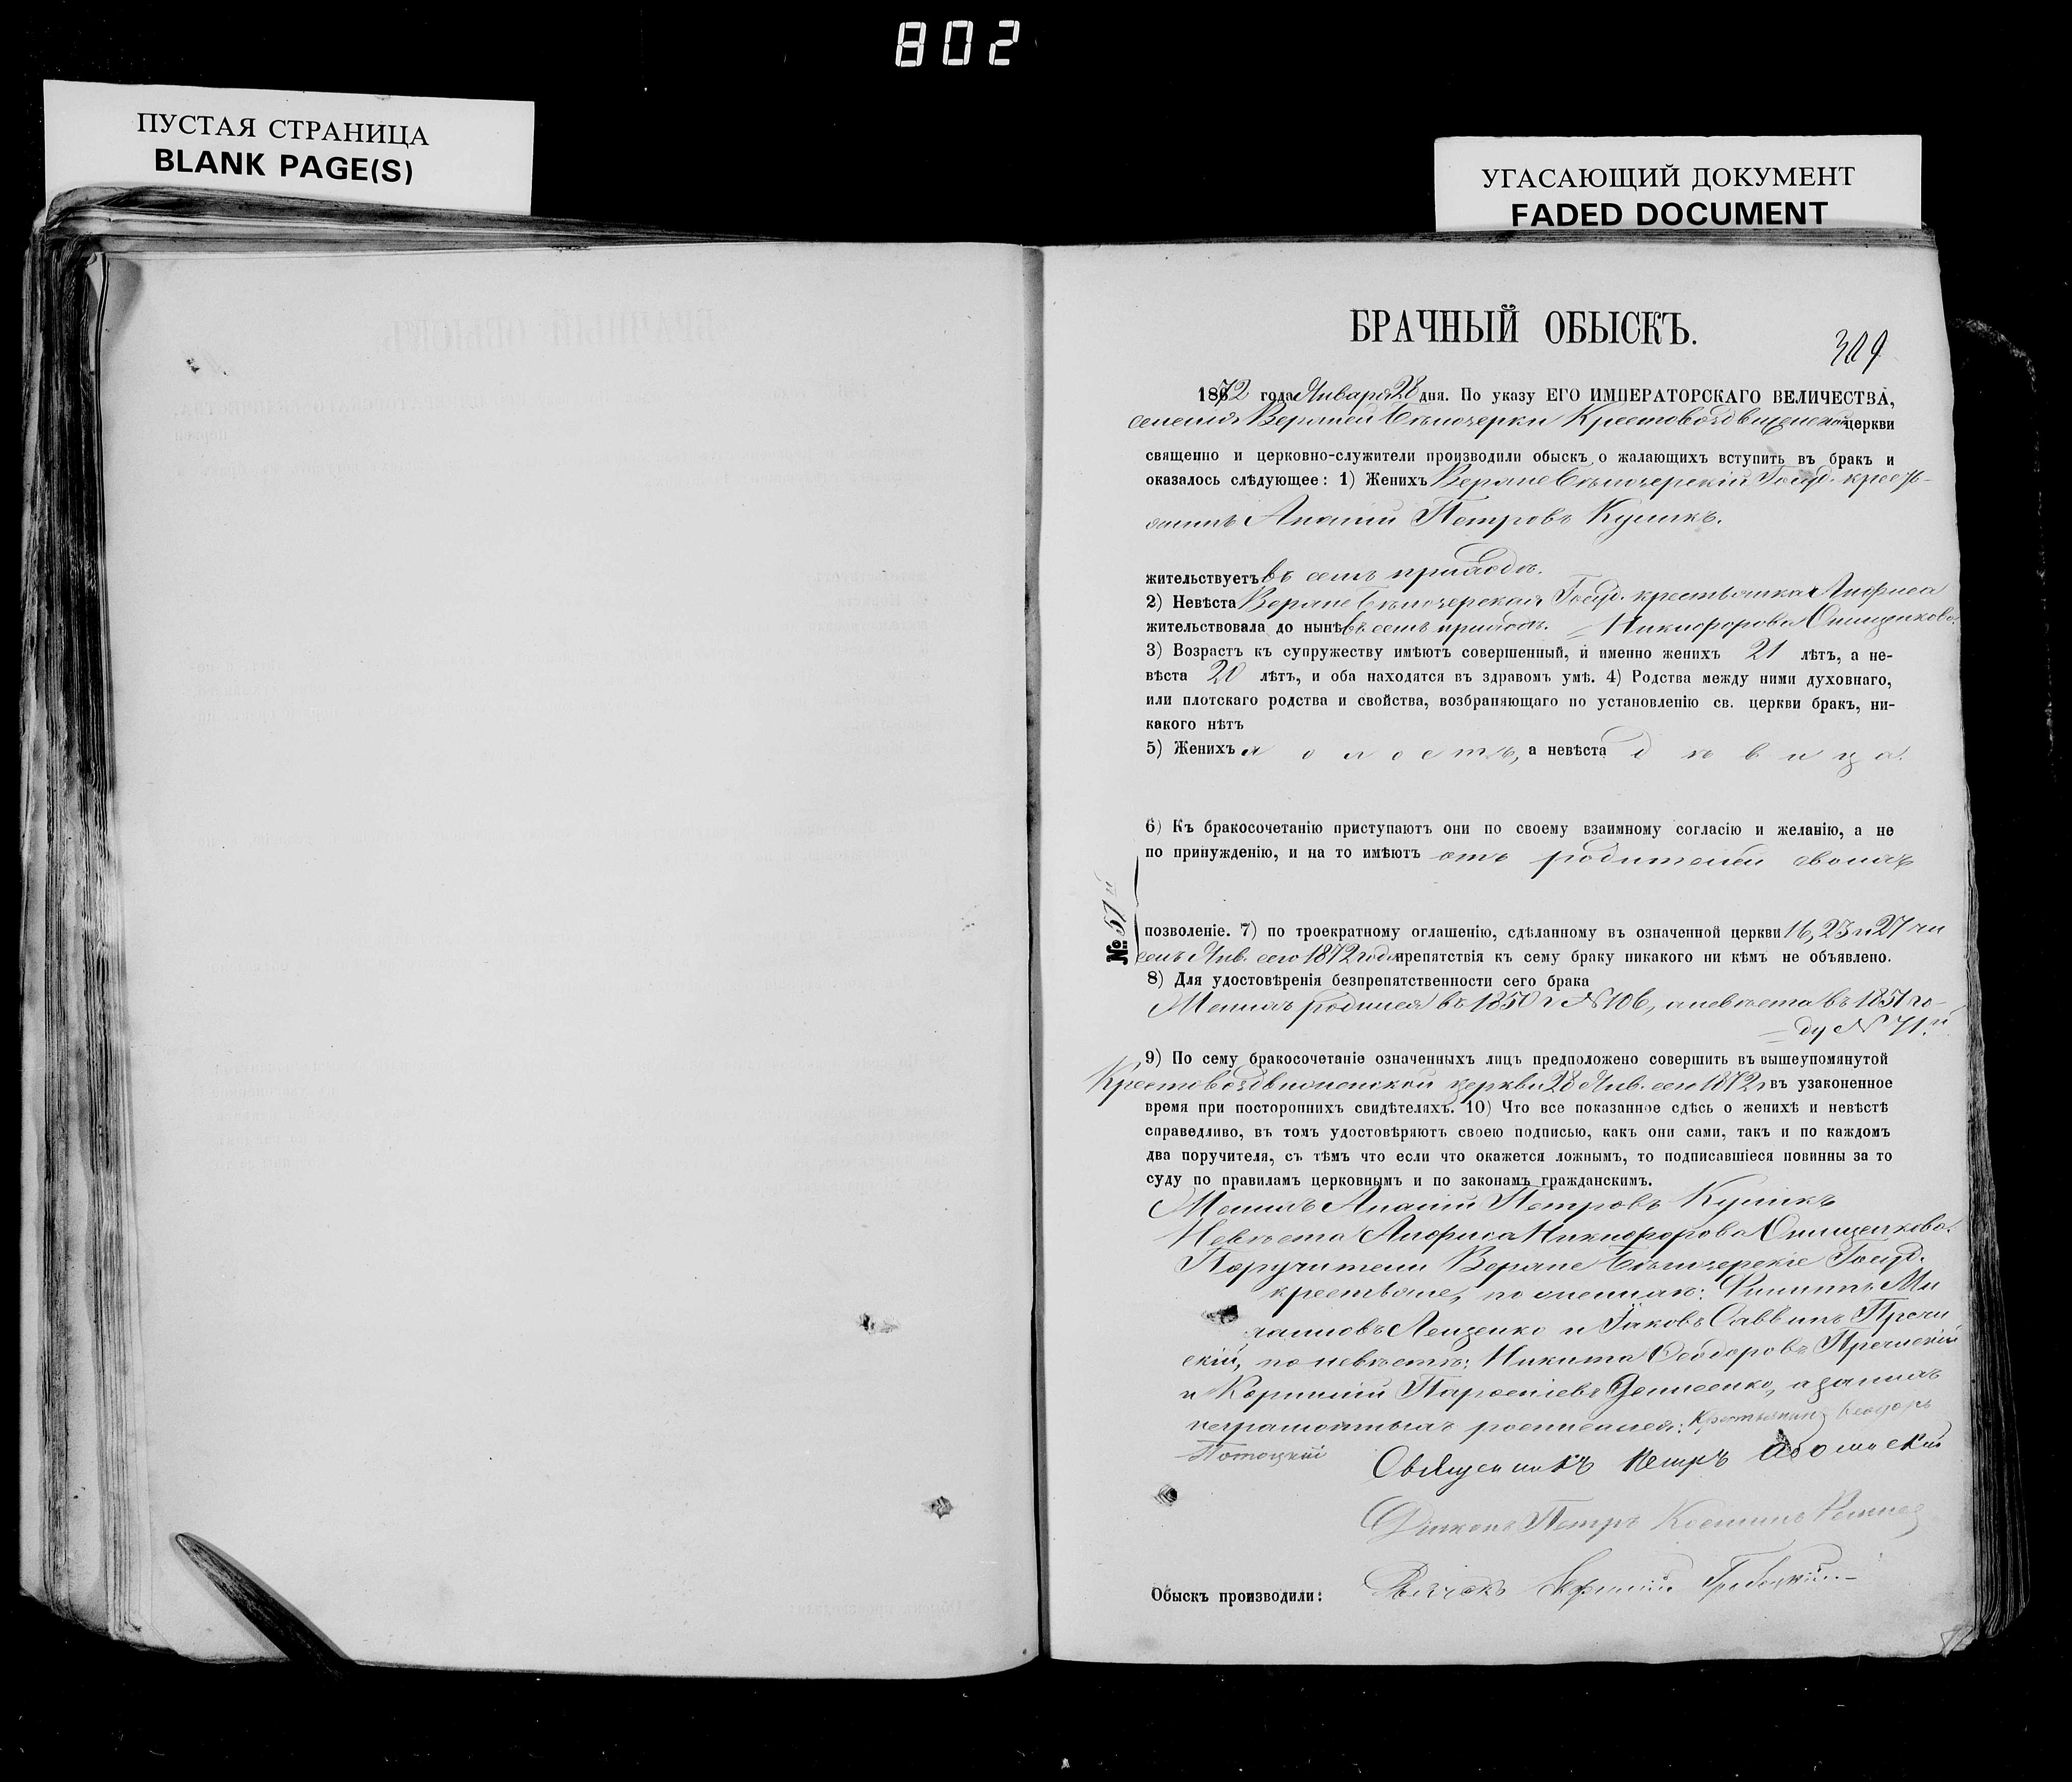 802
ПУСТАЯ СТРАНИЦА
BLANK PAGE(S)
УГАСАЮЩИЙ ДОКУМЕНТ
FADED DOCUMENT
БРАЧНЫЙ ОБЫСКЪ.
309
1872 года Января 28 дня. По указу ЕГО ИМПЕРАТОРСКАГО ВЕЛИЧЕСТВА,
селенія Верхней Бѣлозерки Крестовоздвиженской церкви
священно и церковно-служители производили обыскъ о жалающихъ вступить въ бракъ и
оказалось слѣдующее: 1) Женихъ Верхне Бѣлозерскій Госуд. кресть-
янинъ Ананій Петровъ Куликъ.
жительствуетъ въ семъ приходѣ.
2) Невѣста Верхне Бѣлозерская Госуд. крестьянка Анфиса
жительствовала до нынѣ въ семъ приходѣ. = Никифорова Онищенкова.
3) Возрастъ къ супружеству имѣютъ совершенный, и именно женихъ 21 лѣтъ, а не-
вѣста 20 лѣтъ, и оба находятся въ здравомъ умѣ. 4) Родства между ними духовнаго,
или плотскаго родства и свойства, возбраняющаго по установленію св. церкви бракъ, ни-
какого нѣтъ
5) Женихъ холостъ, а невѣста дѣвица.
6) Къ бракосочетанію приступаютъ они по своему взаимному согласію и желанію, а не
по принужденію, и на то имѣютъ отъ родителей своихъ
№ 51й
позволеніе. 7) по троекратному оглашенію, сдѣланному въ означенной церкви 16, 23 и 27 чи
слъ Янв. сего 1872 года препятствія къ сему браку никакого ни кѣмъ не объявлено.
8) Для удостовѣренія безпрепятственности сего брака
Женихъ родился въ 1850 г № 106, а невѣста въ 1851 го-
=ду № 71.й
9) По сему бракосочетаніе означенныхъ лицъ предположено совершить въ вышеупомянутой
Крестовоздвиженской церкви 28 Янв. сего 1872 г въ узаконенное
время при постороннихъ свидѣтеляхъ. 10) Что все показанное сдѣсь о женихѣ и невѣстѣ
справедливо, въ томъ удостовѣряютъ своею подписью, какъ они сами, такъ и по каждомъ
два поручителя, съ тѣмъ что если что окажется ложнымъ, то подписавшіеся повинны за то
суду по правиламъ церковнымъ и по законамъ гражданскимъ.
Женихъ Ананій Петровъ Куликъ
Невѣста Анфиса Никифорова Онищенкова.
Поручители Верхне Бѣлозерскіе Госуд.
крестьяне, по женихѣ: Филиппъ Ми
хаиловъ Лещенко и Іаковъ Саввинъ
скій, по невѣстѣ: Никита Ѳеодоровъ
и Корнилій Парѳеніевъ Денисенко, а за нихъ
неграмотныхъ росписался: Крестьянинъ Ѳеодоръ
Потоцкій
Священникъ Петръ
Діаконъ Петръ
Обыскъ производили: